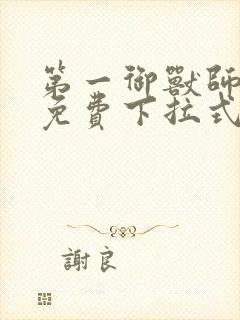 第一御獸師
免費下拉式
謝良